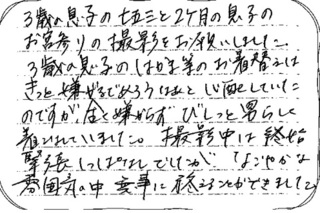 3歳の息子の七五三と2ケ月の息子の
お宮参りの撮影をお願いしました。
3歳の息子のはかま等のお着替えは
きっと嫌がるでしょうなあと心配していた
のですが、全く嫌がらず びしっと男らしく
着こなしていました。撮影中は終始
緊張しっぱなしでしたが なごやかな
雰囲気の中 無事に終えることができました。